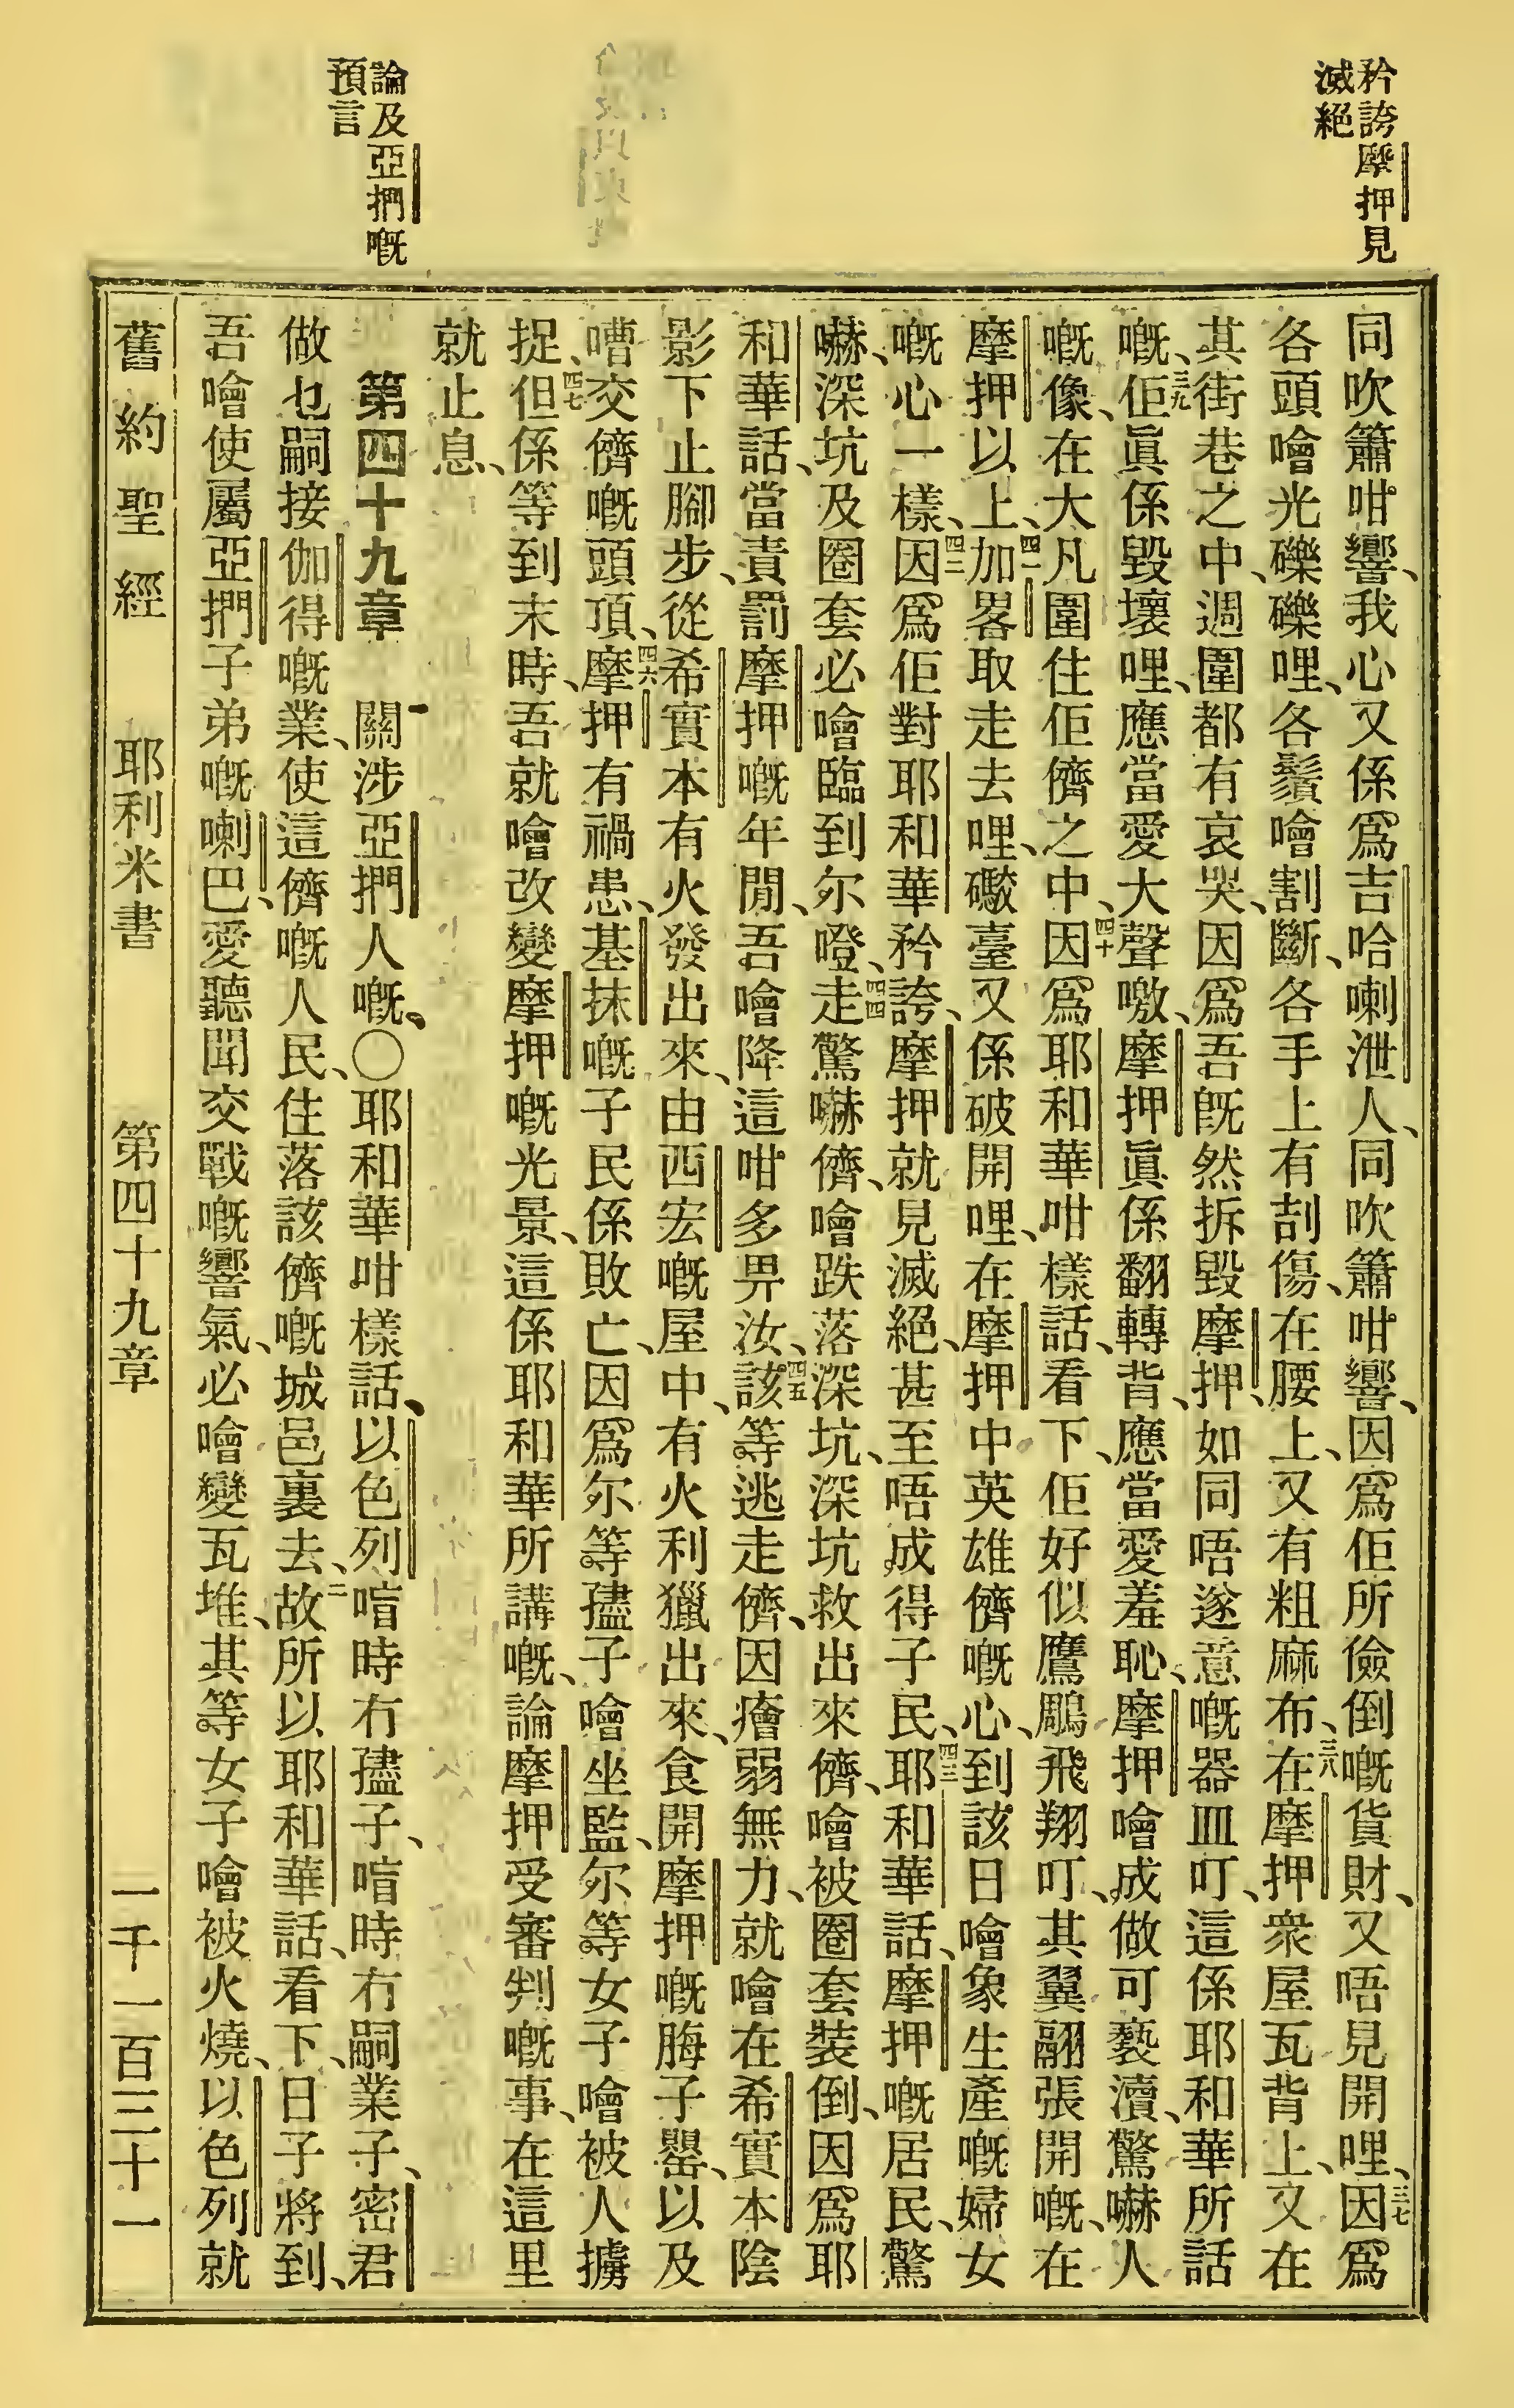 矜誇摩押見
滅絕
論及亞捫嘅
預言
同吹簫咁響、我心又係爲吉哈喇泄人、同吹簫咁響、因爲佢所儉倒嘅貨財、又唔見開哩、三七因爲
各頭噲光礫礫哩、各鬚噲割斷、各手上有剖傷、在腰上、又有粗麻布、三八在摩押衆屋瓦背上、又在
其街巷之中、週圍都有哀哭、因爲吾既然拆毀摩押、如同唔遂意嘅器皿叮、這係耶和華所話
嘅、三九佢眞係毀壞哩、應當愛大聲噭、摩押眞係翻轉背、應當愛羞恥、摩押噲成做可褻瀆、驚嚇人
嘅像、在大凡圍住佢儕之中、四十因爲耶和華咁樣話、看下、佢好似鷹鵰飛翔叮、其翼翮張開嘅、在
摩押以上、四一加畧取走去哩、礮臺又係破開哩、在摩押中英雄儕嘅心、到該日噲象生產嘅婦女
嘅心一樣、四二因爲佢對耶和華矜誇、摩押就見滅絕、甚至唔成得子民、四三耶和華話、摩押嘅居民、驚
嚇、深坑及圈套必噲臨到尔噔、四四走驚嚇儕、噲跌落深坑、深坑救出來儕、噲被圈套裝倒、因爲耶
和華話、當責罰摩押嘅年間、吾噲降這咁多畀汝、四五該等逃走儕、因癐弱無力、就噲在希實本陰
影下止腳步、從希實本有火發出來、由西宏嘅屋中、有火利獵出來、食開摩押嘅脢子罌、以及
嘈交儕嘅頭頂、四六摩押有禍患、基抹嘅子民係敗亡、因爲尔等孻子噲坐監、尔等女子噲被人擄
捉、四七但係等到末時、吾就噲改變摩押嘅光景、這係耶和華所講嘅、論摩押受審判嘅事、在這里
就止息、
第四十九章　一關涉亞捫人嘅、○耶和華咁樣話、以色列喑時冇孻子、喑時冇嗣業子、密君
做乜嗣接伽得嘅業、使這儕嘅人民、住落該儕嘅城邑裏去、二故所以耶和華話、看下、日子將到、
吾噲使屬亞捫子弟嘅喇巴、愛聽聞交戰嘅響氣、必噲變瓦堆、其等女子噲被火燒、以色列就
舊約聖經　耶利米書　第四十九章　一千一百三十一